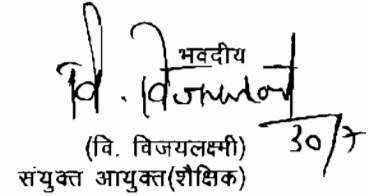 भवदीय
वि. विजयलक्ष्मी
30/7
(वि. विजयलक्ष्मी)
संयुक्त आयुक्त(शैक्षिक)